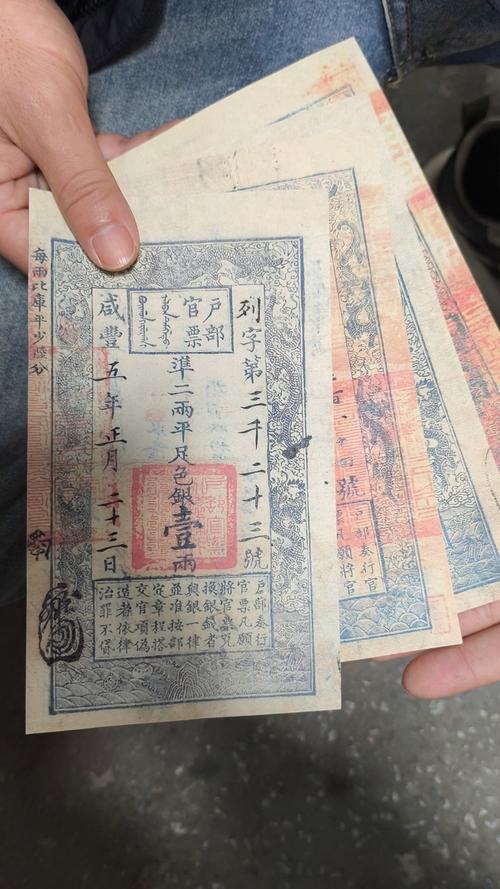 列字第三千二十三號
戶部
官票
準二兩平足色銀壹兩
咸豐五年正月二十三日
戶部奏行
官票凡願
將官票兌
換銀錢者
與銀一律
並准按部
定章程搭
交官項偽
造者依律
治罪不貸
每兩比庫平少陸分
號
戶部奏行官
票凡願將官